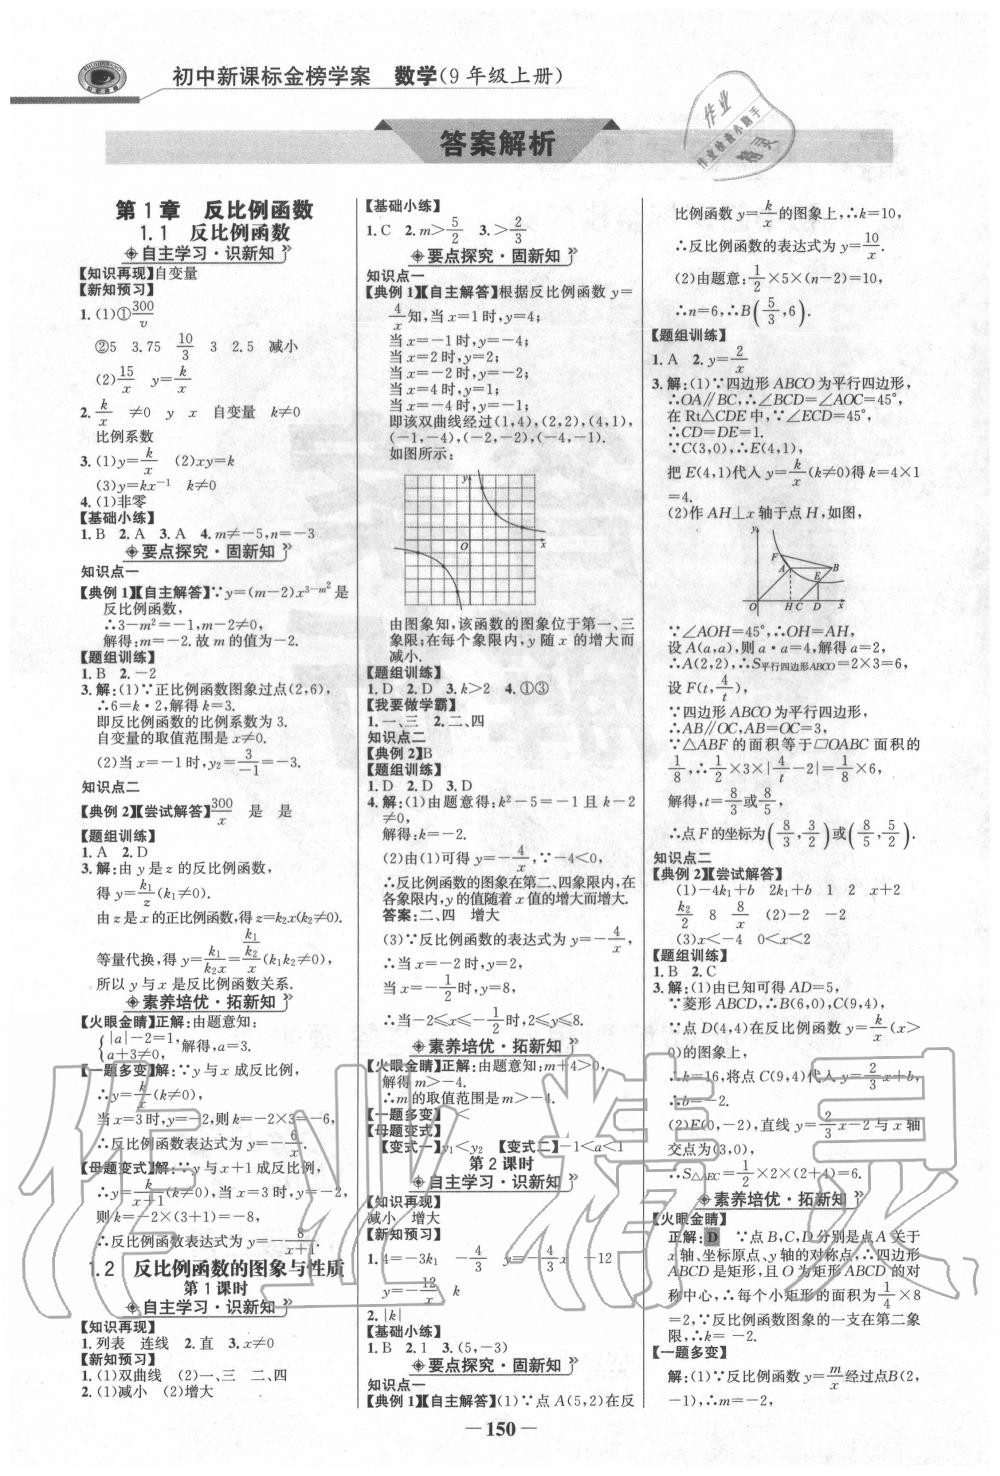 初中新课标金榜学案 数学(9年级上册)
答案解析
作业
作业检查小助手
精灵
第1章 反比例函数
1.1 反比例函数
自主学习·识新知
【知识再现】自变量
【新知预习】
1.(1)①300/v
②5 3.75 10/3 3 2.5 减小
(2)15/x y=k/x
2.k/x ≠0 y x 自变量 k≠0
比例系数
3.(1)y=k/x (2)xy=k
(3)y=kx⁻¹ k≠0
4.(1)非零
【基础小练】
1.B 2.A 3.A 4.m≠-5,n=-3
要点探究·固新知
知识点一
【典例1】【自主解答】∵y=(m-2)x^(3-m²)是
反比例函数,
∴3-m²=-1,m-2≠0,
解得:m=-2.故m的值为-2.
【题组训练】
1.B 2.-2
3.解:(1)∵正比例函数图象过点(2,6),
∴6=k·2,解得k=3.
即反比例函数的比例系数为3.
自变量的取值范围是x≠0.
(2)当x=-1时,y₂=3/-1=-3.
知识点二
【典例2】【尝试解答】300/x 是 是
【题组训练】
1.A 2.D
3.解:由y是z的反比例函数,
得y=k₁/z(k₁≠0).
由z是x的正比例函数,得z=k₂x(k₂≠0).
等量代换,得y=k₁/k₂x=(k₁/k₂)/x(k₁k₂≠0),
所以y与x是反比例函数关系.
素养培优·拓新知
【火眼金睛】正解:由题意知:
{|a|-2=1,
a+3≠0, 解得,a=3.
【一题多变】解:∵y与x成反比例,
∴y=k/x(k≠0),
当x=3时,y=-2,则k=-2×3=-6,
∴反比例函数表达式为y=-6/x.
【母题变式】解:∵y与x+1成反比例,
∴y=k/(x+1)(k≠0),当x=3时,y=-2,
则k=-2×(3+1)=-8,
∴反比例函数表达式为y=-8/(x+1).
1.2 反比例函数的图象与性质
第1课时
自主学习·识新知
【知识再现】
1.列表 连线 2.直 3.x≠0
【新知预习】
1.(1)双曲线 (2)一、三 二、四
2.(1)减小 (2)增大
【基础小练】
1.C 2.m>5/2 3.>2/3
要点探究·固新知
知识点一
【典例1】【自主解答】根据反比例函数y=
4/x知,当x=1时,y=4;
当x=-1时,y=-4;
当x=2时,y=2;
当x=-2时,y=-2;
当x=4时,y=1;
当x=-4时,y=-1;
即该双曲线经过(1,4),(2,2),(4,1),
(-1,-4),(-2,-2),(-4,-1).
如图所示:
y
O
x
由图象知,该函数的图象位于第一、三
象限;在每个象限内,y随x的增大而
减小.
【题组训练】
1.D 2.D 3.k>2 4.①③
【我要做学霸】
1.一、三 2.二、四
知识点二
【典例2】B
【题组训练】
1.D 2.D 3.D
4.解:(1)由题意得:k²-5=-1且k-2
≠0,
解得:k=-2.
(2)由(1)可得y=-4/x,∵-4<0,
∴反比例函数的图象在第二、四象限内,在
各象限内,y的值随着x值的增大而增大.
答案:二、四 增大
(3)∵反比例函数的表达式为y=-4/x,
∴当x=-2时,y=2,
当x=-1/2时,y=8,
∴当-2≤x≤-1/2时,2≤y≤8.
素养培优·拓新知
【火眼金睛】正解:由题意知:m+4>0,
解得m>-4.
∴m的取值范围是m>-4.
【一题多变】<
【母题变式】
【变式一】y₁<y₂ 【变式二】-1<a<1
第2课时
自主学习·识新知
【知识再现】
减小 增大
【新知预习】
1.4=-3k₁ -4/3 y=-4/3x -12
y=-12/x k
2.|k|
【基础小练】
1.B 2.1 3.(5,-3)
要点探究·固新知
知识点一
【典例1】【自主解答】(1)∵点A(5,2)在反
比例函数y=k/x的图象上,∴k=10,
∴反比例函数的表达式为y=10/x.
(2)由题意:1/2×5×(n-2)=10,
∴n=6,∴B(5/3,6).
【题组训练】
1.A 2.y=2/x
3.解:(1)∵四边形ABCO为平行四边形,
∴OA∥BC,∴∠BCD=∠AOC=45°,
在Rt△CDE中,∵∠ECD=45°,
∴CD=DE=1.
∵C(3,0),∴E(4,1),
把E(4,1)代入y=k/x(k≠0)得k=4×1
=4.
(2)作AH⊥x轴于点H,如图,
y
F
A
B
E
O H C D x
∵∠AOH=45°,∴OH=AH,
设A(a,a),则a·a=4,解得a=2,
∴A(2,2),∴S平行四边形ABCO=2×3=6,
设F(t,4/t),
∵四边形ABCO为平行四边形,
∴AB∥OC,AB=OC=3,
∵△ABF的面积等于□OABC面积的
1/8,∴1/2×3×|4/t-2|=1/8×6,
解得,t=8/3或8/5,
∴点F的坐标为(8/3,3/2)或(8/5,5/2).
知识点二
【典例2】【尝试解答】
(1)-4k₁+b 2k₁+b 1 2 x+2
k₂/2 8 8/x (2)-2 -2
(3)x<-4 0<x<2
【题组训练】
1.B 2.C
3.解:(1)由已知可得AD=5,
∵菱形ABCD,∴B(6,0),C(9,4),
∵点D(4,4)在反比例函数y=k/x(x>
0)的图象上,
∴k=16,将点C(9,4)代入y=2/3x+b,
∴b=-2.
(2)E(0,-2),直线y=2/3x-2与x轴
交点为(3,0),
∴S△AEC=1/2×2×(2+4)=6.
素养培优·拓新知
【火眼金睛】
正解:D ∵点B,C,D分别是点A关于
x轴、坐标原点、y轴的对称点,∴四边形
ABCD是矩形,且O为矩形ABCD的对
称中心,∴每个小矩形的面积为1/4×8
=2,∵反比例函数图象的一支在第二象
限,∴k=-2.
【一题多变】
解:(1)∵反比例函数y=m/x经过点B(2,
-1),∴m=-2,
— 150 —
作业精灵